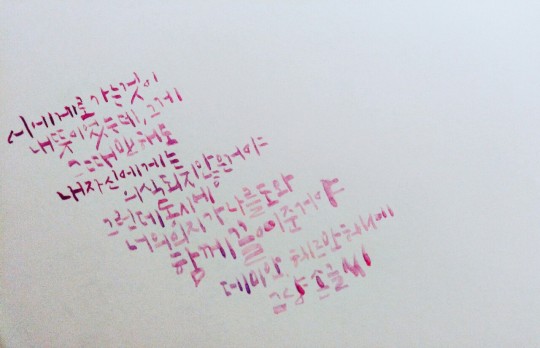 너에게로 가는것이
내뜻이었는데, 그게
그때만해도
내자신에게는
의식되지않은거야
그런데동시에
너의의지가나를도와
함께
데미안, 헤르만헤세
그냥 손글씨